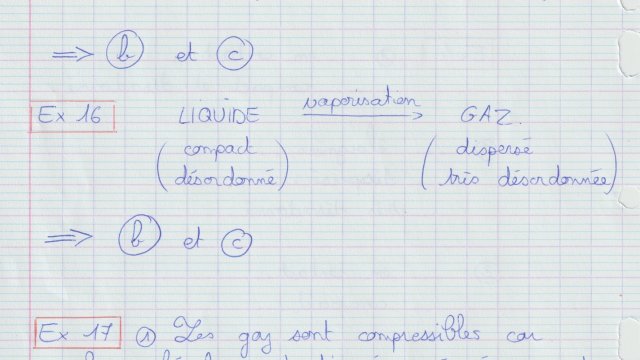 ⇒ b et c
Ex 16 LIQUIDE vaporisation → GAZ.
(compact (dispersé
désordonné) très désordonnée)
⇒ b et c
Ex 17 ① Les gaz sont compressibles car